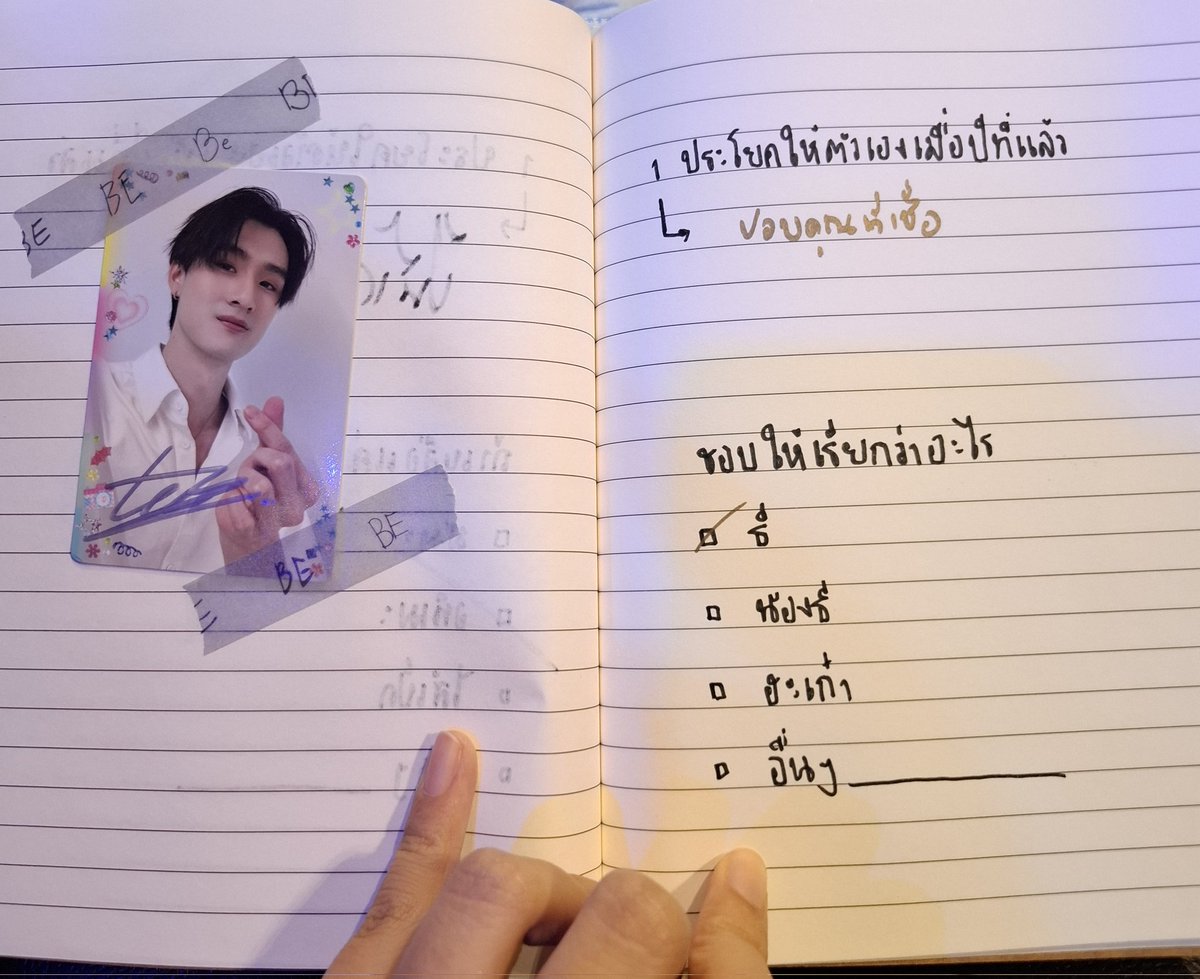 BE
Be
BE
BE
BE
BE
1 ประโยคให้ตัวเองเมื่อปีที่แล้ว
ขอบคุณที่เชื่อ
ชอบให้เรียกว่าอะไร
ธี่
น้องธี่
ฮะเก๋า
อื่นๆ